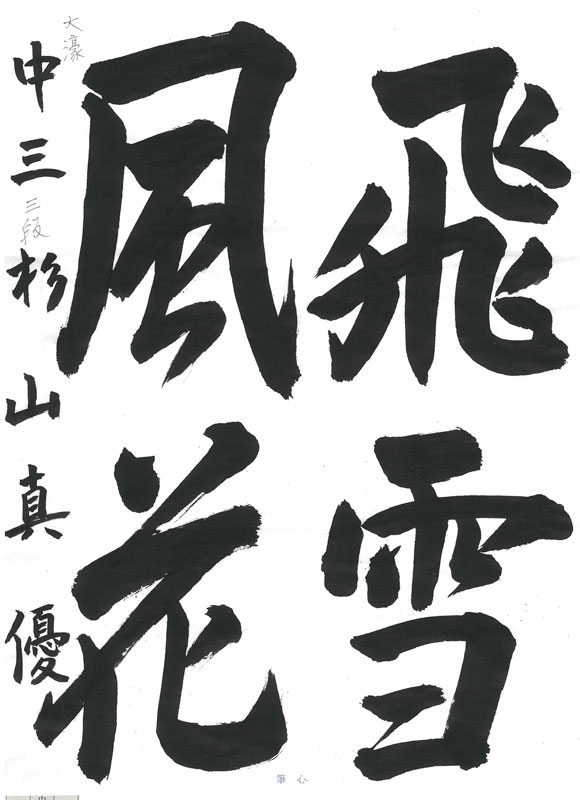 飛雪
風花
大濠
中三 三段 杉山真優
筆心